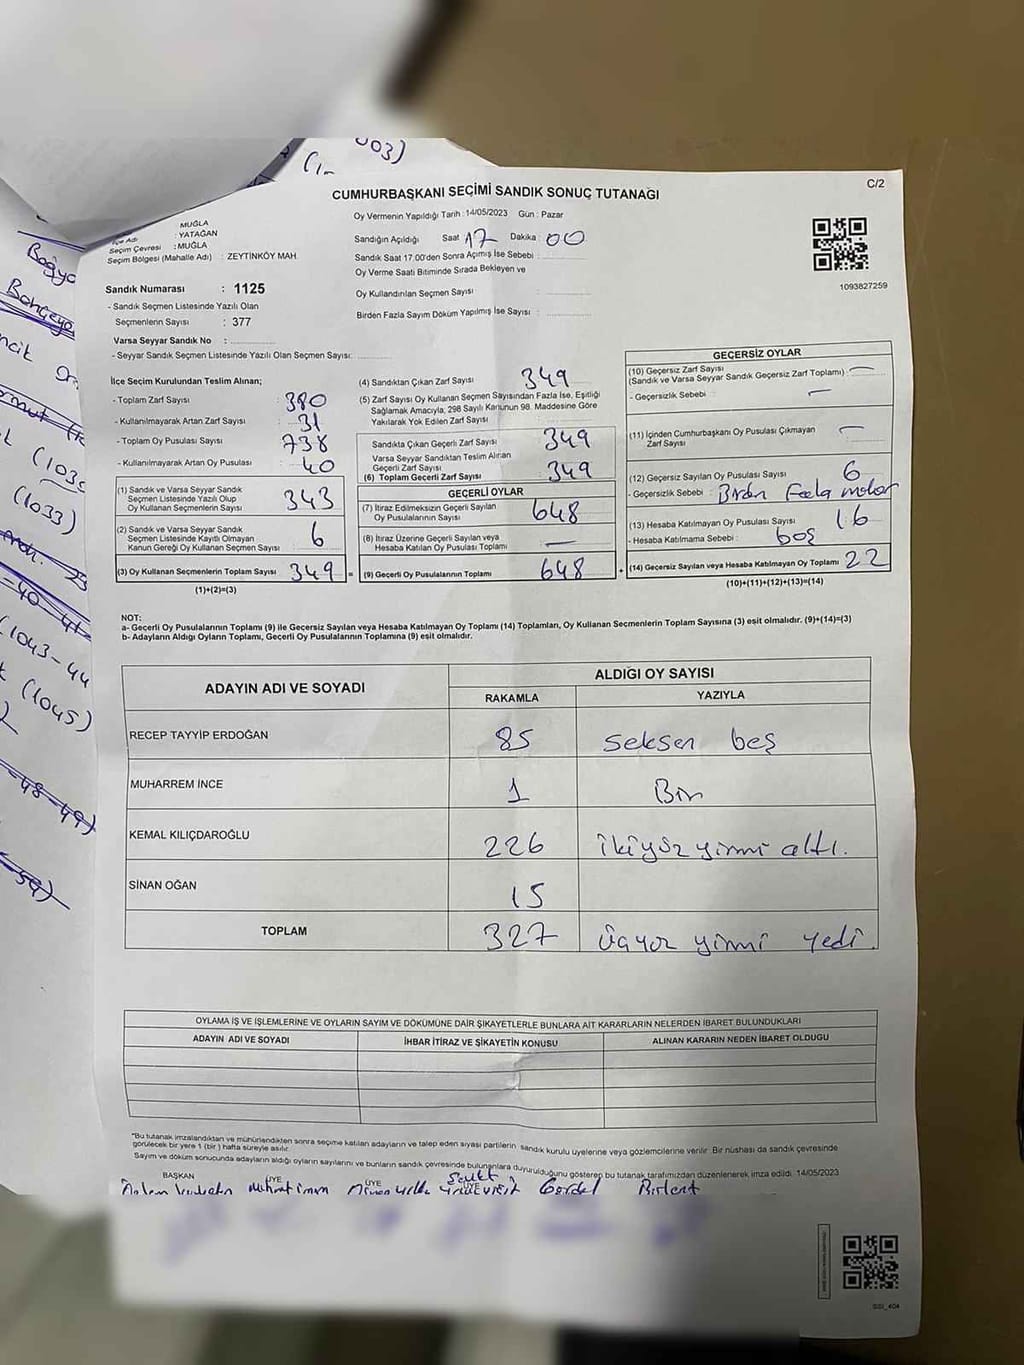 003)
CUMHURBAŞKANI SEÇİMİ SANDIK SONUÇ TUTANAĞI
C/2
Oy Vermenin Yapıldığı Tarih : 14/05/2023 Gün : Pazar
: MUĞLA
İlçe Adı : YATAĞAN
Seçim Çevresi : MUĞLA
Seçim Bölgesi (Mahalle Adı) : ZEYTİNKÖY MAH.
Sandığın Açıldığı Saat 17 Dakika : 00
Sandık Saat 17.00'den Sonra Açımış İse Sebebi :
Oy Verme Saati Bitiminde Sırada Bekleyen ve
Oy Kullandırılan Seçmen Sayısı :
Birden Fazla Sayım Döküm Yapılmış İse Sayısı :
1093827259
Sandık Numarası : 1125
- Sandık Seçmen Listesinde Yazılı Olan
Seçmenlerin Sayısı : 377
Varsa Seyyar Sandık No :
- Seyyar Sandık Seçmen Listesinde Yazılı Olan Seçmen Sayısı:
İlçe Seçim Kurulundan Teslim Alınan;
- Toplam Zarf Sayısı : 380
- Kullanılmayarak Artan Zarf Sayısı : 31
- Toplam Oy Pusulası Sayısı : 738
- Kullanılmayarak Artan Oy Pusulası : 40
(1) Sandık ve Varsa Seyyar Sandık
Seçmen Listesinde Yazılı Olup
Oy Kullanan Seçmenlerin Sayısı 343
(2) Sandık ve Varsa Seyyar Sandık
Seçmen Listesinde Kayıtlı Olmayan
Kanun Gereği Oy Kullanan Seçmen Sayısı 6
(3) Oy Kullanan Seçmenlerin Toplam Sayısı 349 =
(1)+(2)=(3)
(4) Sandıktan Çıkan Zarf Sayısı 349
(5) Zarf Sayısı Oy Kullanan Seçmen Sayısından Fazla İse, Eşitliği
Sağlamak Amacıyla, 298 Sayılı Kanunun 98. Maddesine Göre
Yakılarak Yok Edilen Zarf Sayısı :
Sandıkta Çıkan Geçerli Zarf Sayısı 349
Varsa Seyyar Sandıktan Teslim Alınan
Geçerli Zarf Sayısı
(6) Toplam Geçerli Zarf Sayısı 349
GEÇERLİ OYLAR
(7) İtiraz Edilmeksizin Geçerli Sayılan
Oy Pusulalarının Sayısı 648
(8) İtiraz Üzerine Geçerli Sayılan veya
Hesaba Katılan Oy Pusulası Toplamı —
(9) Geçerli Oy Pusulalarının Toplamı 648 +
GEÇERSİZ OYLAR
(10) Geçersiz Zarf Sayısı
(Sandık ve Varsa Seyyar Sandık Geçersiz Zarf Toplamı) —
- Geçersizlik Sebebi : —
(11) İçinden Cumhurbaşkanı Oy Pusulası Çıkmayan
Zarf Sayısı —
(12) Geçersiz Sayılan Oy Pusulası Sayısı 6
- Geçersizlik Sebebi :
(13) Hesaba Katılmayan Oy Pusulası Sayısı 16
- Hesaba Katılmama Sebebi : boş
(14) Geçersiz Sayılan veya Hesaba Katılmayan Oy Toplamı 22
(10)+(11)+(12)+(13)=(14)
NOT:
a- Geçerli Oy Pusulalarının Toplamı (9) ile Geçersiz Sayılan veya Hesaba Katılmayan Oy Toplamı (14) Toplamları, Oy Kullanan Seçmenlerin Toplam Sayısına (3) eşit olmalıdır. (9)+(14)=(3)
b- Adayların Aldığı Oyların Toplamı, Geçerli Oy Pusulalarının Toplamına (9) eşit olmalıdır.
ADAYIN ADI VE SOYADI
ALDIĞI OY SAYISI
RAKAMLA YAZIYLA
RECEP TAYYİP ERDOĞAN 85 seksen beş
MUHARREM İNCE 1 Bir
KEMAL KILIÇDAROĞLU 226 ikiyüz yirmi altı.
SİNAN OĞAN 15
TOPLAM 327 üçyüz yirmi yedi.
OYLAMA İŞ VE İŞLEMLERİNE VE OYLARIN SAYIM VE DÖKÜMÜNE DAİR ŞİKAYETLERLE BUNLARA AİT KARARLARIN NELERDEN İBARET BULUNDUKLARI
ADAYIN ADI VE SOYADI
İHBAR İTİRAZ VE ŞİKAYETİN KONUSU
ALINAN KARARIN NEDEN İBARET OLDUĞU
"Bu tutanak imzalandıktan ve mühürlendikten sonra seçime katılan adayların ve talep eden siyasi partilerin sandık kurulu üyelerine veya gözlemcilerine verilir. Bir nüshası da sandık çevresinde
görülecek bir yere 1 (bir) hafta süreyle asılır.
Sayım ve döküm sonucunda adayların aldığı oyların sayılarını ve bunların sandık çevresinde bulunanlara duyurulduğunu gösteren bu tutanak tarafımızdan düzenlenerek imza edildi. 14/05/2023
BAŞKAN ÜYE ÜYE ÜYE
(1033)
(1043-44
(1045)